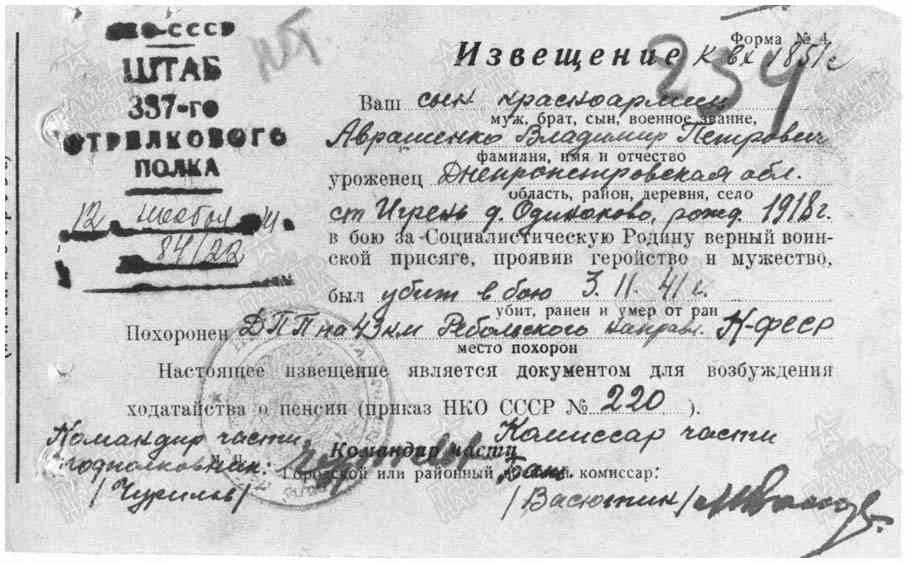 НКО-СССР
ШТАБ
337-го
СТРЕЛКОВОГО
ПОЛКА
12 ноября 41
84/22
Форма № 4
Извещение К вх 1851с
234
Ваш сын красноармеец
муж, брат, сын, военное звание,
Аврашенко Владимир Петрович
фамилия, имя и отчество
уроженец Днепропетровская обл.
область, район, деревня, село
ст Игрень д. Одинково, рожд. 1918г.
в бою за Социалистическую Родину верный воин-
ской присяге, проявив геройство и мужество,
был убит в бою 3.11.41 г.
убит, ранен и умер от ран
Похоронен ДПП на 43 км Ребольского направл. К-ФССР
место похорон
Настоящее извещение является документом для возбуждения
ходатайства о пенсии (приказ НКО СССР № 220 ).
Командир части Комиссар части
Командир части
подполковник:
Городской или районный комиссар:
/Чурилов/ /Васютин/